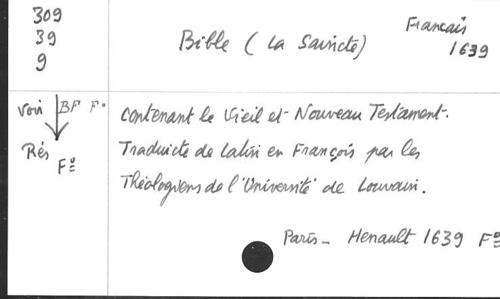 309
39
9
Bible (La Saincte)
Francais
1639
voir BF F°
Rés
F°
contenant le Vieil et Nouveau Testament.
Traduicte de Latin en François par les
Théologiens de l'Université de Louvain.
Paris - Henault 1639 F°